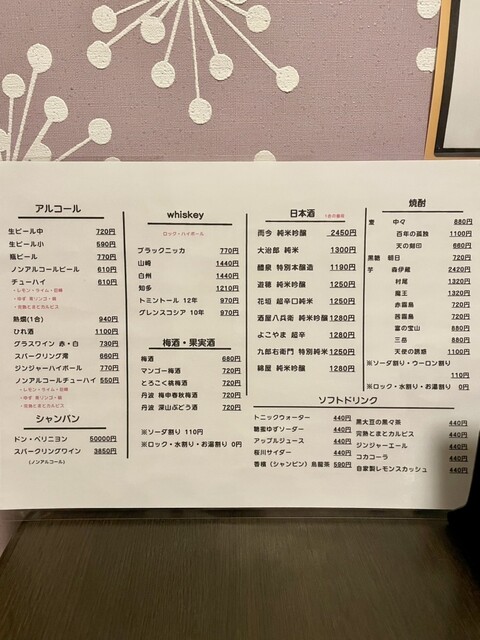 アルコール
生ビール中 720円
生ビール小 590円
瓶ビール 770円
ノンアルコールビール 610円
チューハイ 610円
・レモン・ライム・巨峰
・ゆず 青リンゴ・桃
・完熟とまとカルピス
熱燗(1合) 940円
ひれ酒 1100円
グラスワイン 赤・白 730円
スパークリング澪 660円
ジンジャーハイボール 770円
ノンアルコールチューハイ 550円
・レモン・ライム・巨峰
・ゆず 青リンゴ・桃
・完熟とまとカルピス
シャンパン
ドン・ペリニヨン 50000円
スパークリングワイン 3850円
(ノンアルコール)
whiskey
ロック・ハイボール
ブラックニッカ 770円
山崎 1440円
白州 1440円
知多 1210円
トミントール 12年 970円
グレンスコシア 10年 970円
梅酒・果実酒
梅酒 660円
マンゴー梅酒 720円
とろこく桃梅酒 720円
丹波 梅申春秋梅酒 720円
丹波 深山ぶどう酒 720円
※ソーダ割り 110円
※ロック・水割り・お湯割り 0円
日本酒
而今 純米吟醸 2450円
大治郎 純米 1300円
醴泉 特別本醸造 1190円
遊穂 純米吟醸 1250円
花垣 超辛口純米 1250円
酒屋八兵衛 純米吟醸 1280円
よこやま 超辛 1280円
九郎右衛門 特別純米 1250円
綿屋 純米吟醸 1280円
焼酎
麦 中々 880円
百年の孤独 1100円
天の刻印 660円
黒糖 朝日 720円
芋 森伊蔵 2420円
村尾 1320円
魔王 1320円
赤霧島 720円
茜霧島 720円
富の宝山 880円
三岳 880円
天使の誘惑 1100円
※ソーダ割り・ウーロン割り
110円
※ロック・水割り・お湯割り 0円
ソフトドリンク
トニックウォーター 440円
鞠蜜ゆずソーダー 440円
アップルジュース 440円
桜川サイダー 440円
香檳(シャンピン)烏龍茶 590円
黒大豆の黒々茶 440円
完熟とまとカルピス 440円
ジンジャーエール 440円
コカコーラ 440円
自家製レモンスカッシュ 440円